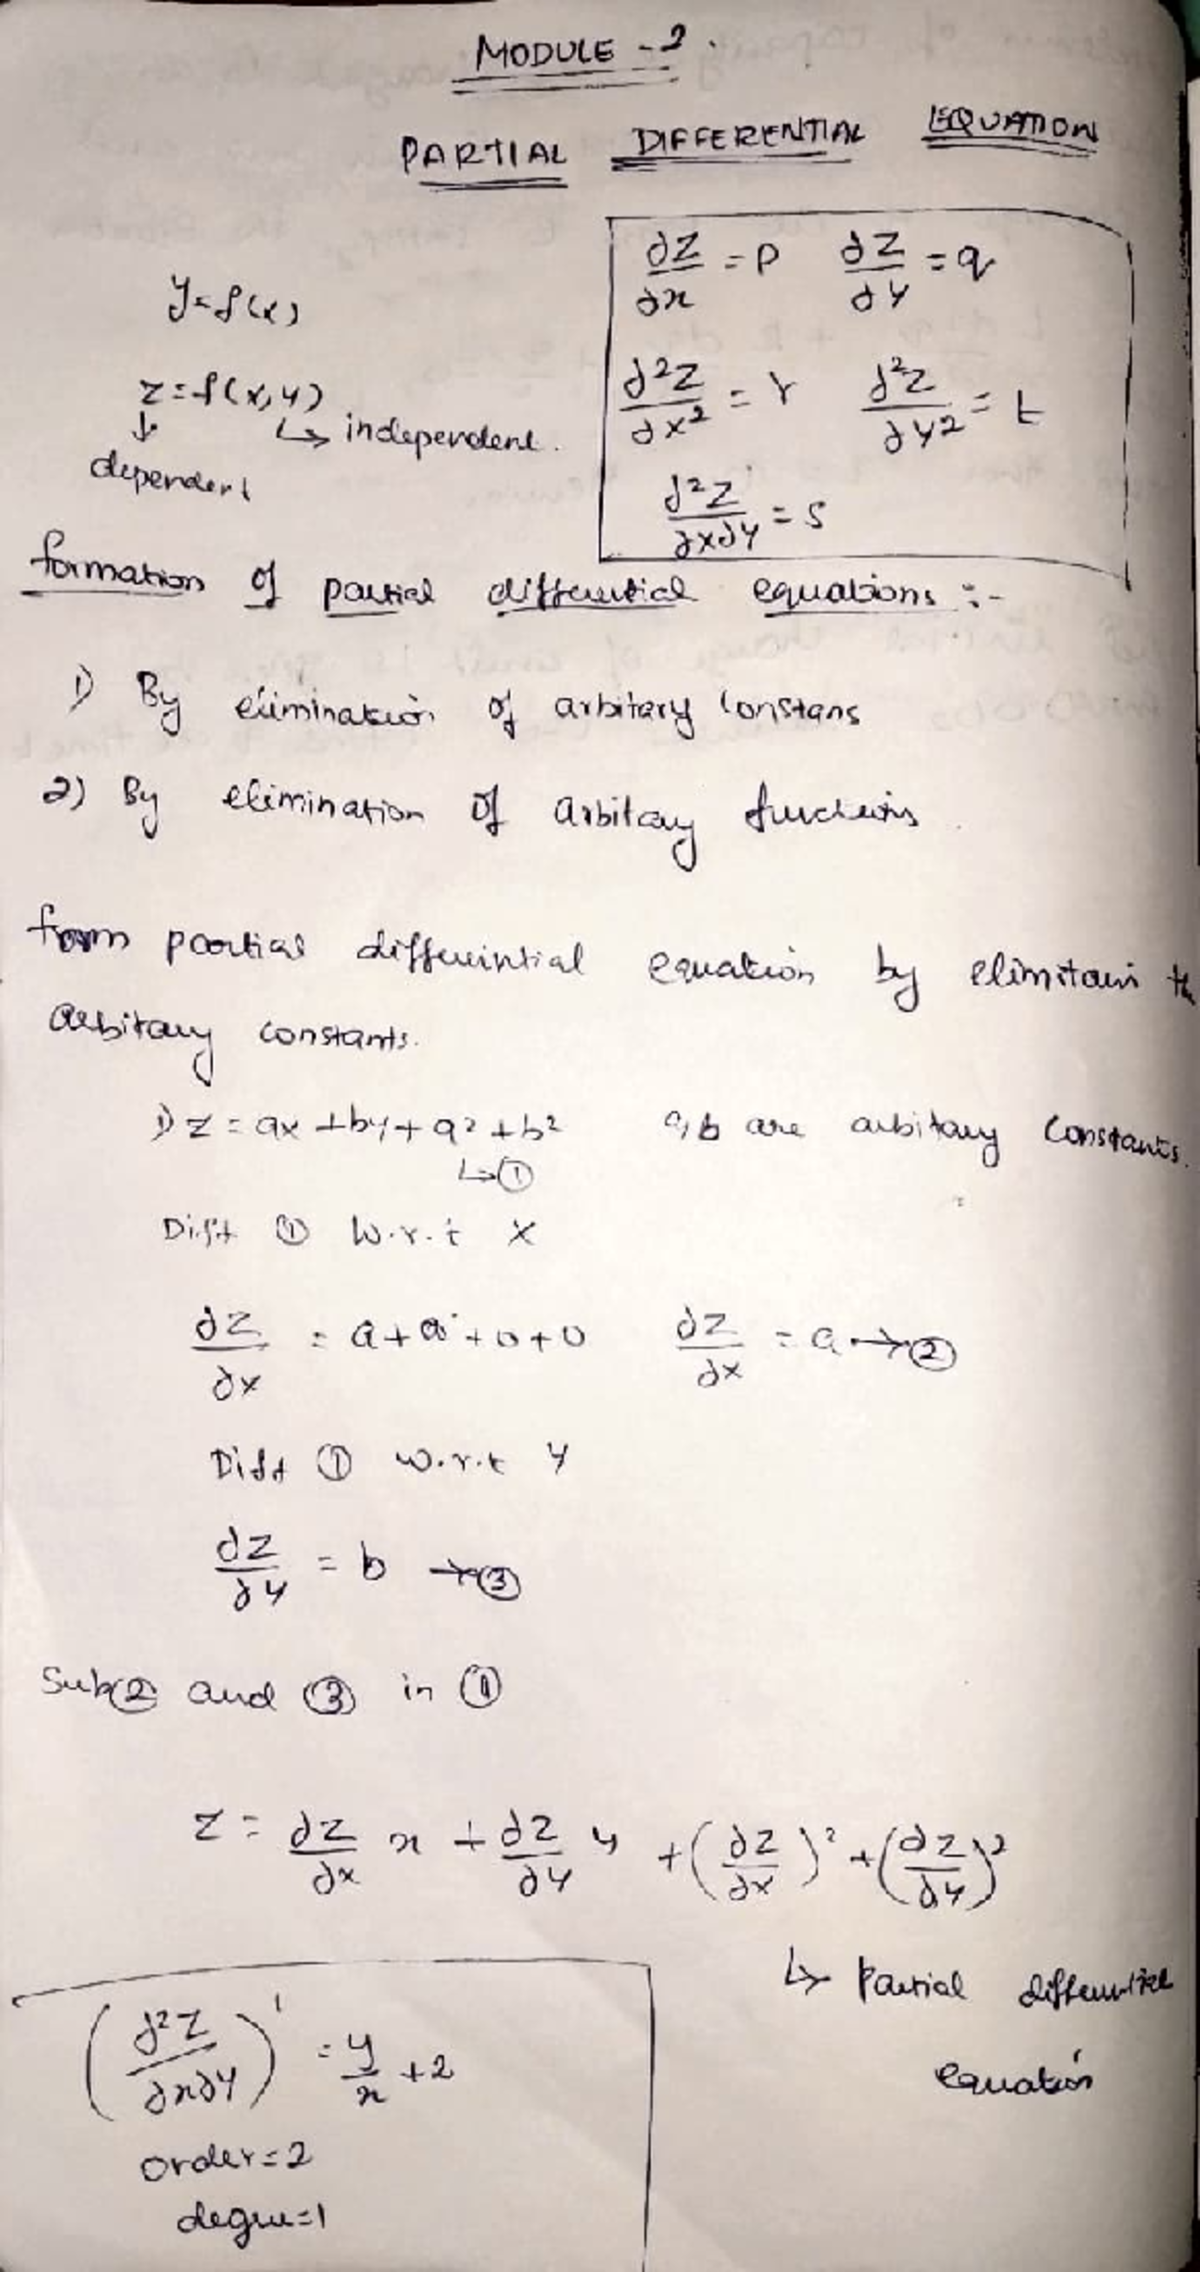 MODULE - 2.
PARTIAL DIFFERENTIAL EQUATION
∂z/∂x = p ∂z/∂y = q
y = f(x)
∂²z/∂x² = r ∂²z/∂y² = t
z = f(x, y)
↓ ↳ independent.
dependent
∂²z/∂x∂y = s
formation of partial differential equations :-
1) By elimination of arbitary constans
2) By elimination of arbitary functions.
form partial differential equation by
arbitary constants.
1) z = ax + by + a² + b² a, b are arbitary constants.
↳ ①
Diff ① w.r.t x
∂z/∂x = a + 0 + 0 + 0 ∂z/∂x = a → ②
Diff ① w.r.t y
∂z/∂y = b → ③
Sub ② and ③ in ①
z = ∂z/∂x x + ∂z/∂y y + (∂z/∂x)² + (∂z/∂y)²
↳ Partial differential
equation
(∂²z/∂x∂y)¹ = y/x + 2
order = 2
degree = 1